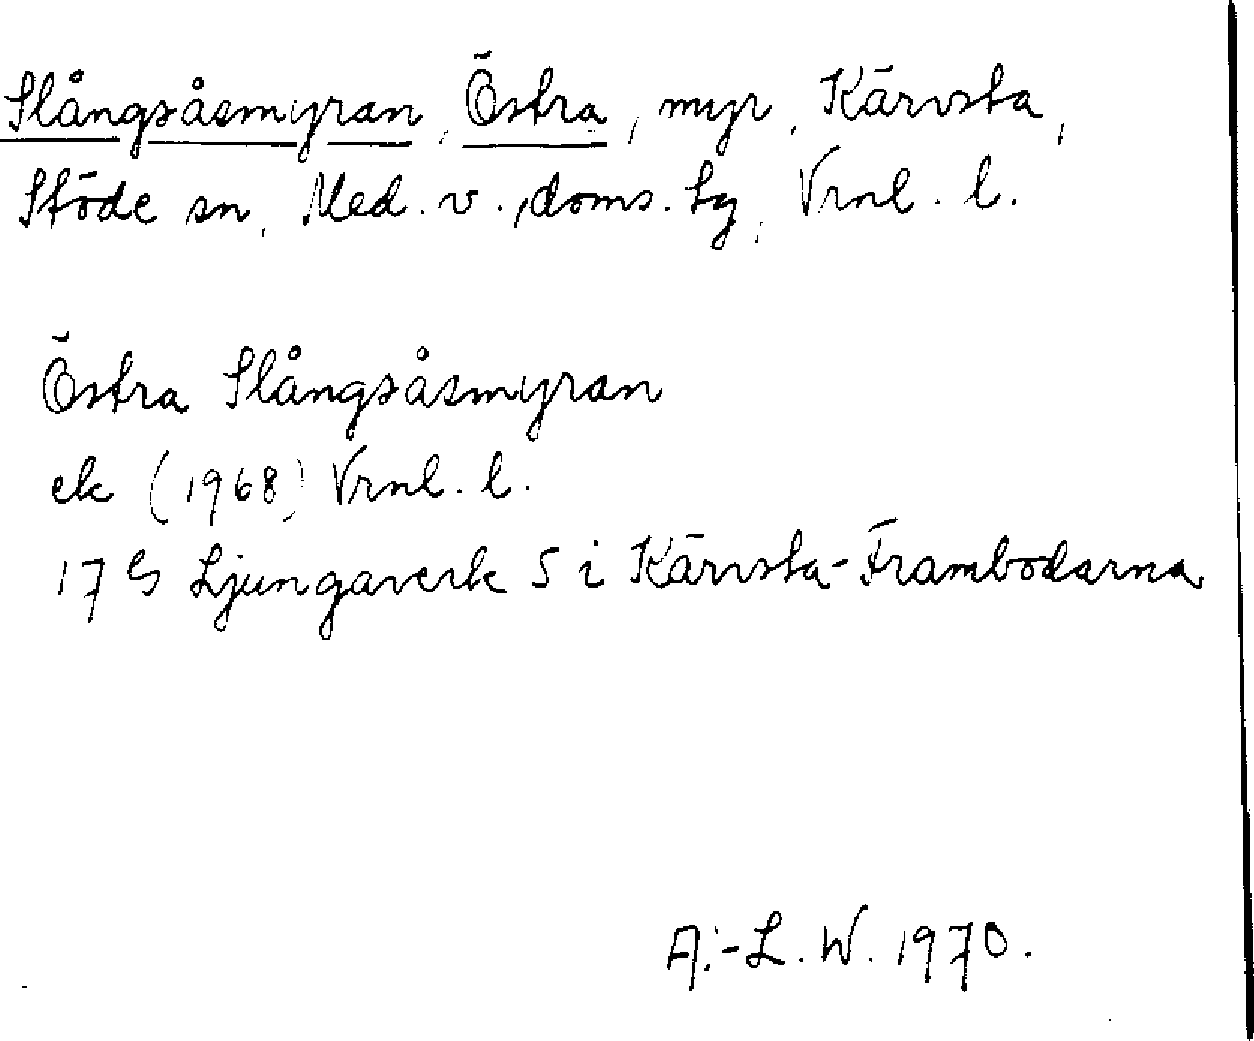 Slångsåsmyran, Östra, myr, Kärvsta,
Stöde sn, Med. v., doms. tg, Vrnl. l.
Östra Slångsåsmyran
ek (1968) Vrnl. l.
17 G Ljungaverk 5 i Kärvsta-Frambodarna
A.-L. W. 1970.